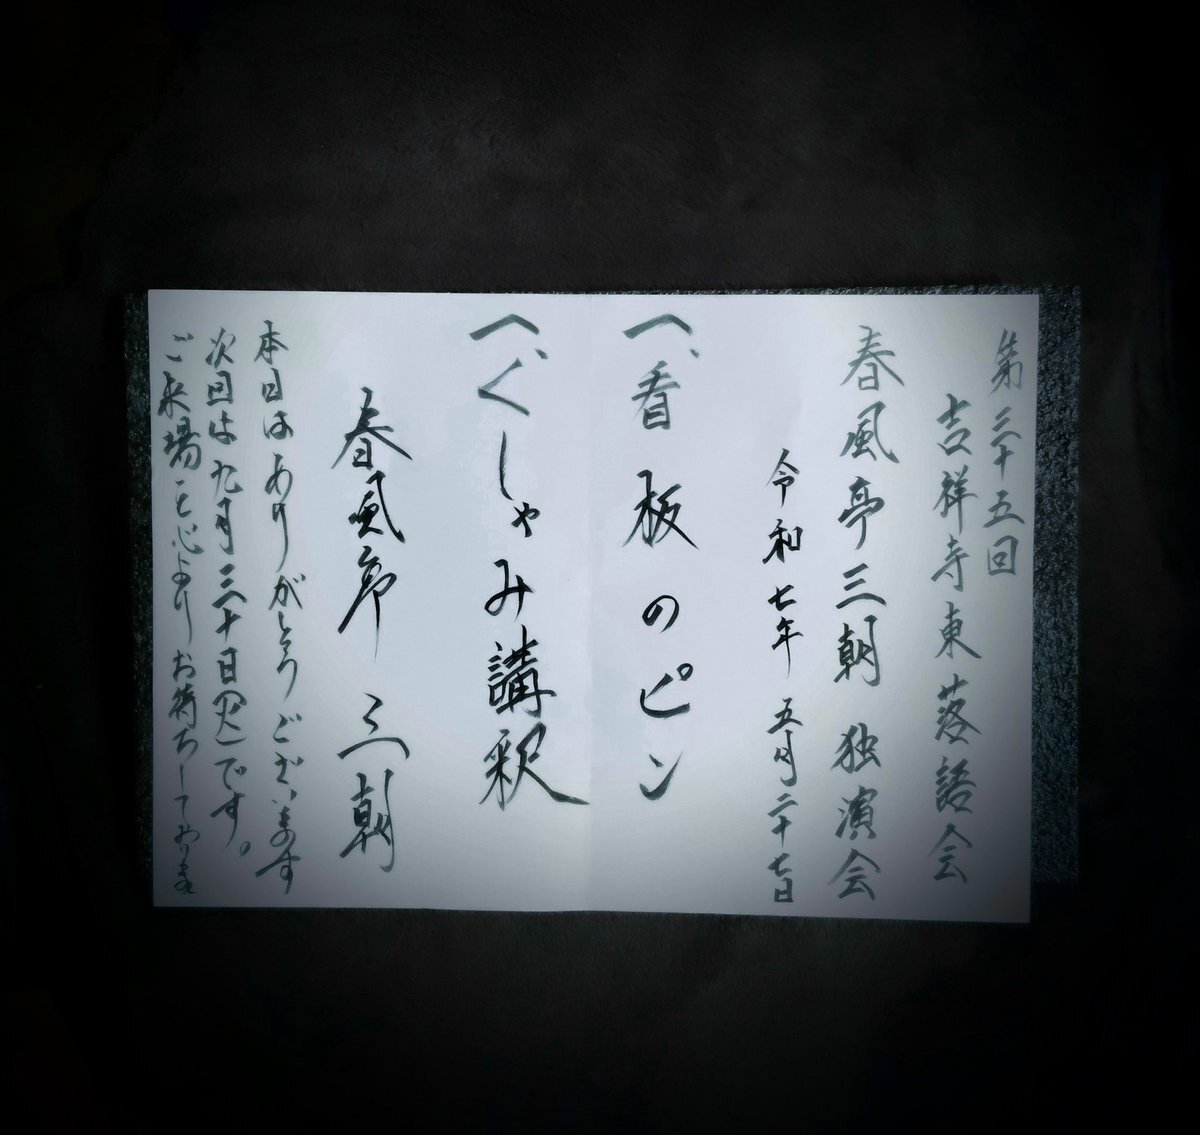 第三十五回
吉祥寺東落語会
春風亭三朝 独演会
令和七年 五月二十七日
〽看板のピン
〽くしゃみ講釈
春風亭 三朝
本日はありがとうございます
次回は九月三十日(火)です。
ご来場を心よりお待ちしております